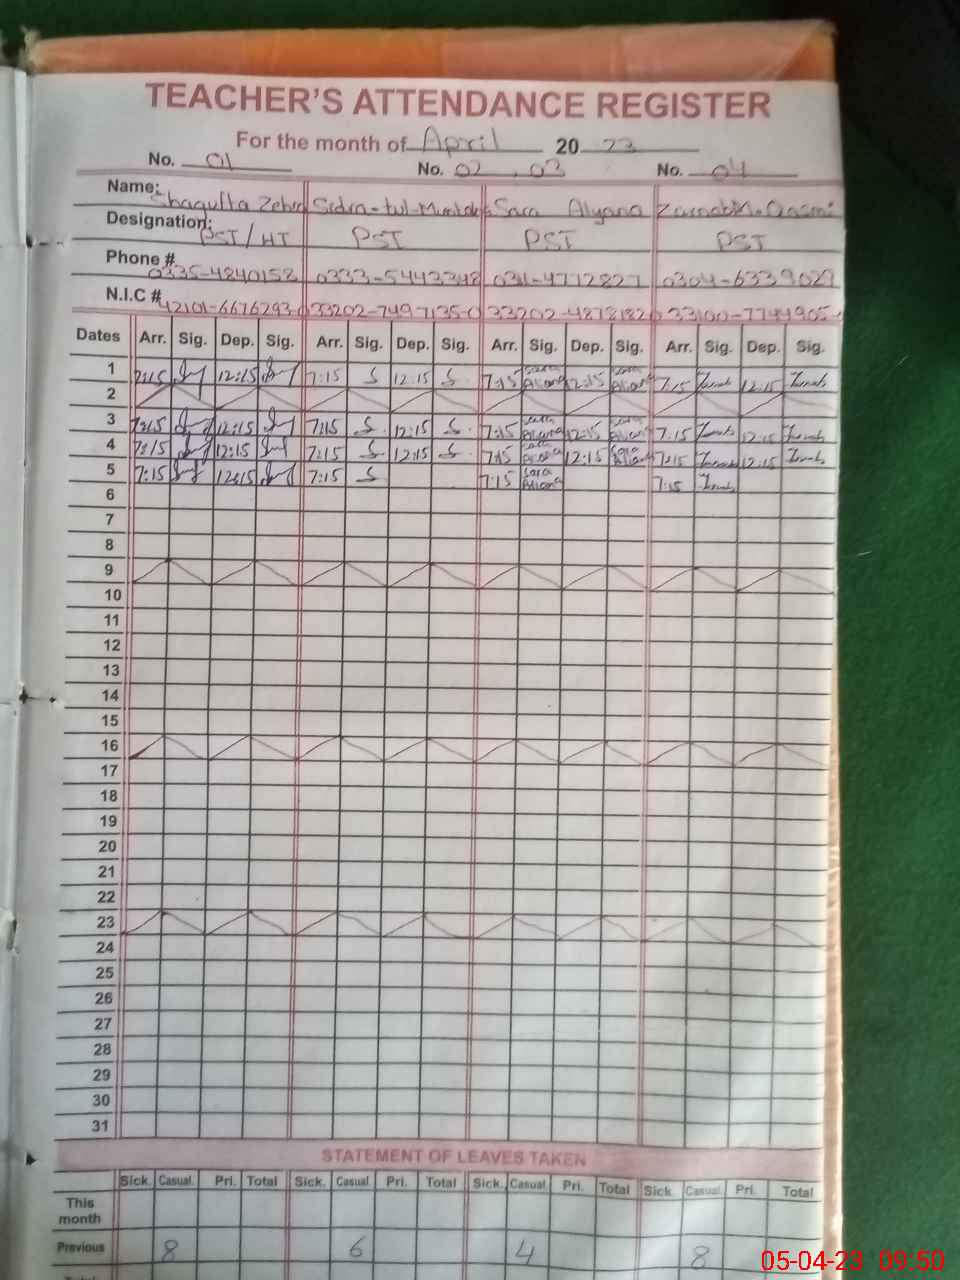 TEACHER'S ATTENDANCE REGISTER
For the month of April 20 23
No. 01 No. 02 , 03 No. 04
Name: Shagufta Zehra Sidra-tul-Muntaha Sara Alyana Zainab
Designation: PST/HT PST PST PST
Phone # 0335-4840152 0333-5443348 031-4772827 0304-6339029
N.I.C # 42101-6676293-0 33202-7497135-0 33202-4878182 33100-7744905-
Dates Arr. Sig. Dep. Sig. Arr. Sig. Dep. Sig. Arr. Sig. Dep. Sig. Arr. Sig. Dep. Sig.
1 7:15 12:15 7:15 S 12:15 S 7:15 Sara Aliana 12:15 Sara Aliana 7:15 Zainab 12:15 Zainab
2
3 7:15 12:15 7:15 S 12:15 S 7:15 Sara Aliana 12:15 Sara Aliana 7:15 Zainab 12:15 Zainab
4 7:15 12:15 7:15 S 12:15 S 7:15 Sara Aliana 12:15 Sara Aliana 7:15 Zainab 12:15 Zainab
5 7:15 12:15 7:15 S 7:15 Sara Aliana 7:15 Zainab
6
7
8
9
10
11
12
13
14
15
16
17
18
19
20
21
22
23
24
25
26
27
28
29
30
31
STATEMENT OF LEAVES TAKEN
Sick. Casual. Pri. Total Sick. Casual. Pri. Total Sick. Casual. Pri. Total Sick. Casual. Pri. Total
This
month
Previous 8 6 4 8
05-04-23 09:50